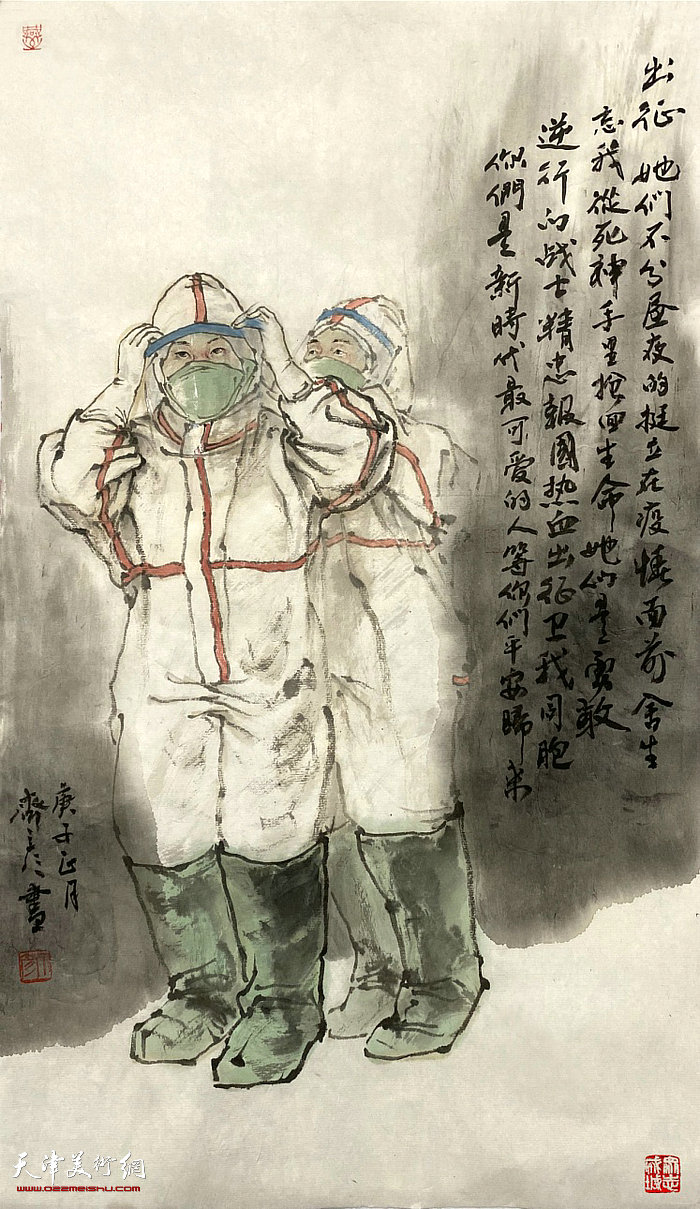 出征 她们不分昼夜的挺立在疫情面前 舍生
忘我從死神手里抢回生命 她们是勇敢
逆行的战士精忠報國热血出征卫我同胞
你們是新時代最可爱的人等你們平安归来
庚子正月
齊彦 畫
天津美術網
www.022meishu.com